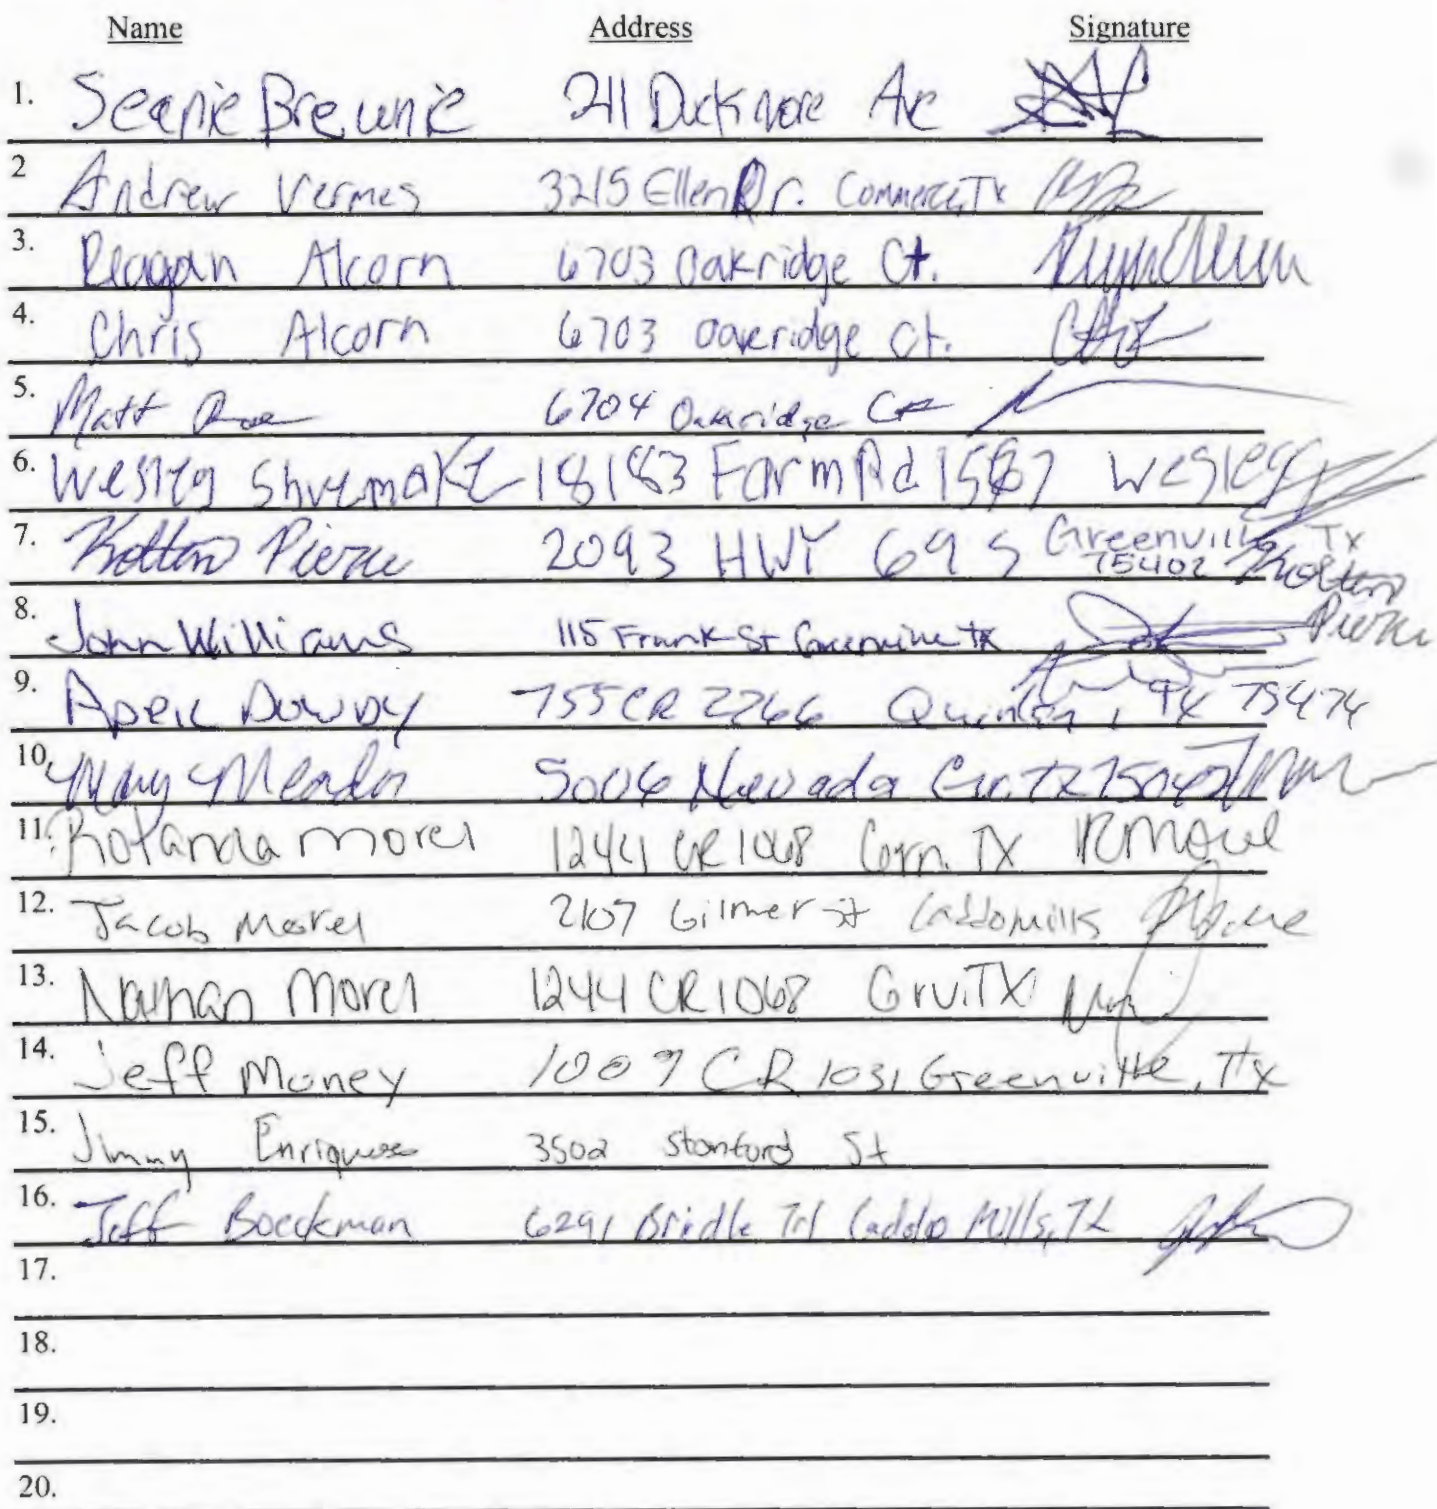 Name Address Signature
1. Seanie Brewnie 211 Duckmore Ave
2 Andrew Vermes 3215 Ellen Dr. Commerce, Tx
3. Reagan Alcorn 6703 Oakridge Ct.
4. Chris Alcorn 6703 Oakridge Ct.
5. Matt 6704 Oakridge Ct
6. Wesley 18183 Farm Rd Wesley
7. Kolton Pierce 2093 HWY 69 S Greenville Tx 75402 Kolton Pierce
8. John Williams 115 Frank St Greenville Tx
9. April Dowdy 755 CR 2266 Quinlan, TX 75474
10. Mary Meador 5006 Nevada
11. Rolanda Morel 1244 CR 1068 TX R Morel
12. Jacob Morel 2107 Gilmer St Caddo Mills
13. Nathan Morel 1244 CR 1068 Grv. TX
14. Jeff Money 1009 CR 1031 Greenville, Tx
15. Jimmy 3502 Stanford St
16. Jeff Boeckman 6291 Bridle Trl Caddo Mills, TX
17.
18.
19.
20.